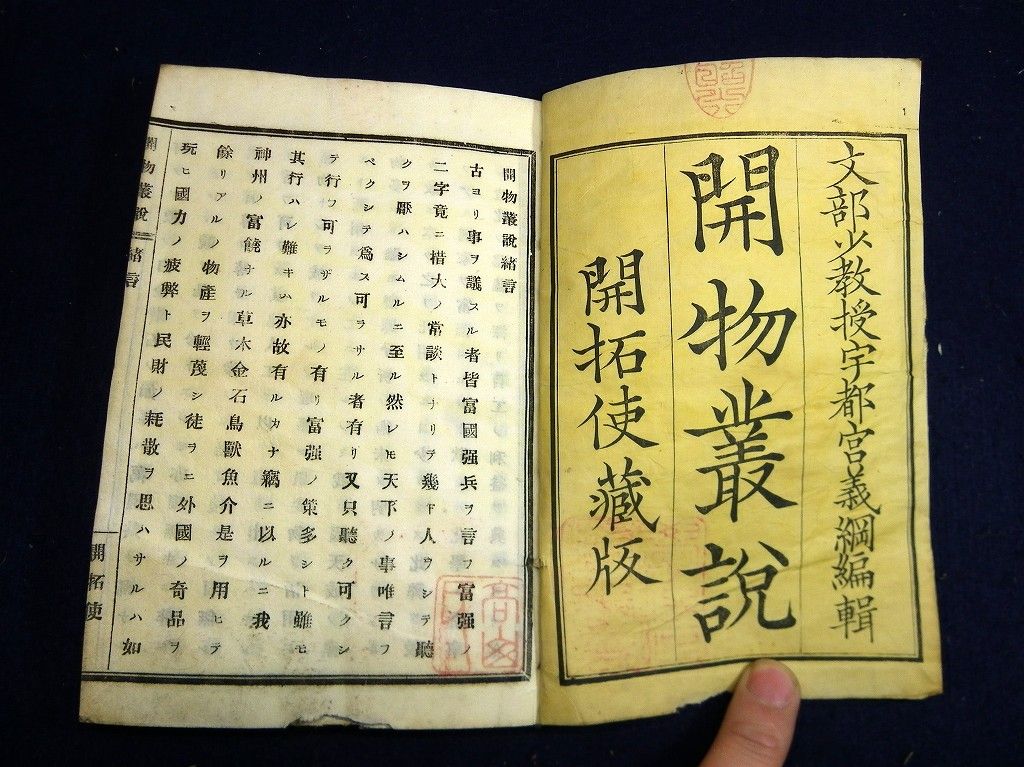 文部少教授宇都宮義綱編輯
開物叢說
開拓使藏版
開物叢說緒言
古ヨリ事ヲ議スル者皆富國强兵ヲ言フ富强ノ
二字竟ニ措大ノ常談トナリテ幾ド人ヲシテ聽
クヲ厭ハシムルニ至ル然レ𪜈天下ノ事唯言フ
ベクシテ爲ス可ラサル者有リ又只聽ク可クシ
テ行フ可ラザルモノ有リ富强ノ策多シト雖モ
其行ハレ難キハ亦故有ルカナ竊ニ以ルニ我
神州ノ富饒ナル草木金石鳥獸魚介是ヲ用ヒテ
餘リアルノ物產ヲ輕蔑シ徒ラニ外國ノ奇品ヲ
玩ヒ國力ノ疲弊ト民財ノ耗散ヲ思ハサルハ如
開物叢說 緒言
開拓使